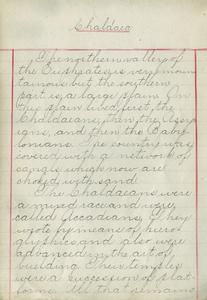 Chaldaea
The northern valley of
the Euphrates is very moun
tainous but the southern
part is a large plain. In
this plain lived first, the
Chaldaeans, then the Assy
rians, and then the Baby-
lonians. The country was
covered with a network of
canals which now are
choked with sand.
The Chaldaeans were
a mixed race and were
called Accadians. They
wrote by means of hiero
glyphics and also were
advanced in the art of
building. Their temples
were a succession of plat-
forms. All that remains